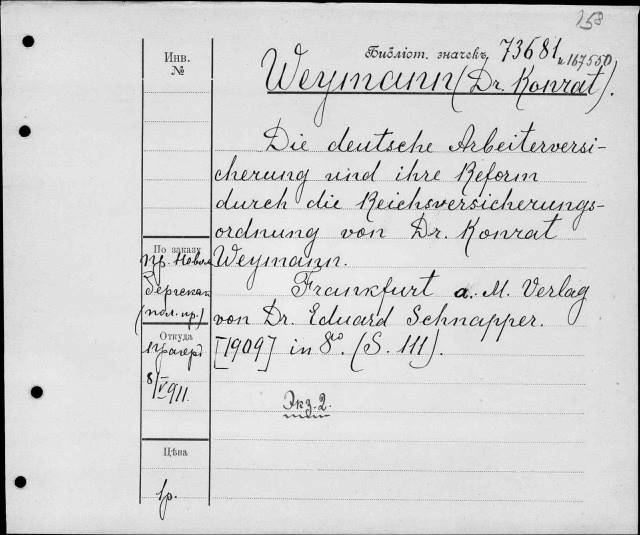 258
Библіот. значекъ 73681
и 167550
Инв.
№
Weymann (Dr. Konrat).
Die deutsche Arbeiterversi-
cherung und ihre Reform
durch die Reichsversicherungs-
ordnung von Dr. Konrat
Weymann.
Frankfurt a. M. Verlag
von Dr. Eduard Schnapper.
[1909] in 8º. (S. 111).
Экз. 2.
По заказу
пр. Новом
бергская
(пол. пр.)
Откуда
8/V 911.
Цѣна
1р.